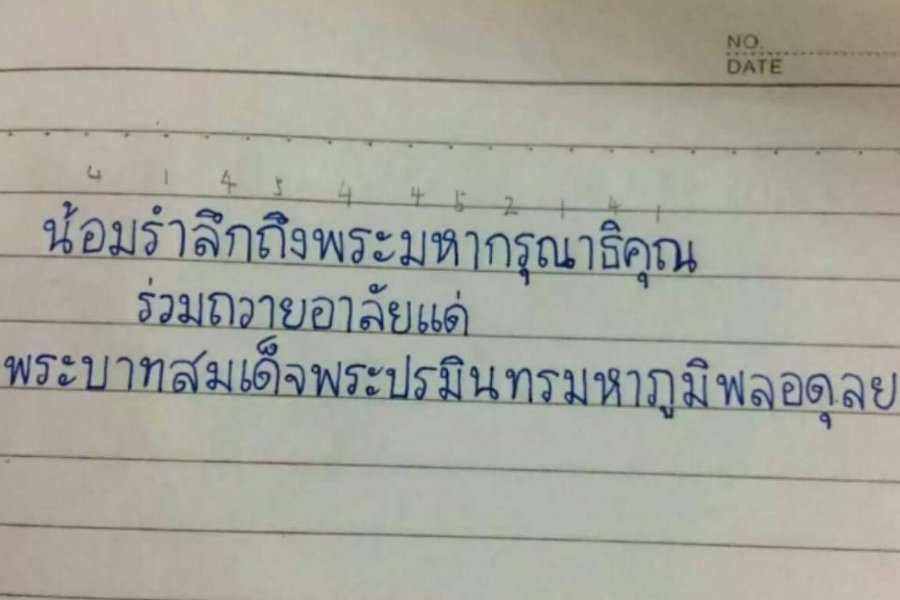 NO.
DATE
4 1 4 5 4 4 5 2 1 4 1
น้อมรำลึกถึงพระมหากรุณาธิคุณ
ร่วมถวายอาลัยแด่
พระบาทสมเด็จพระปรมินทรมหาภูมิพลอดุลย